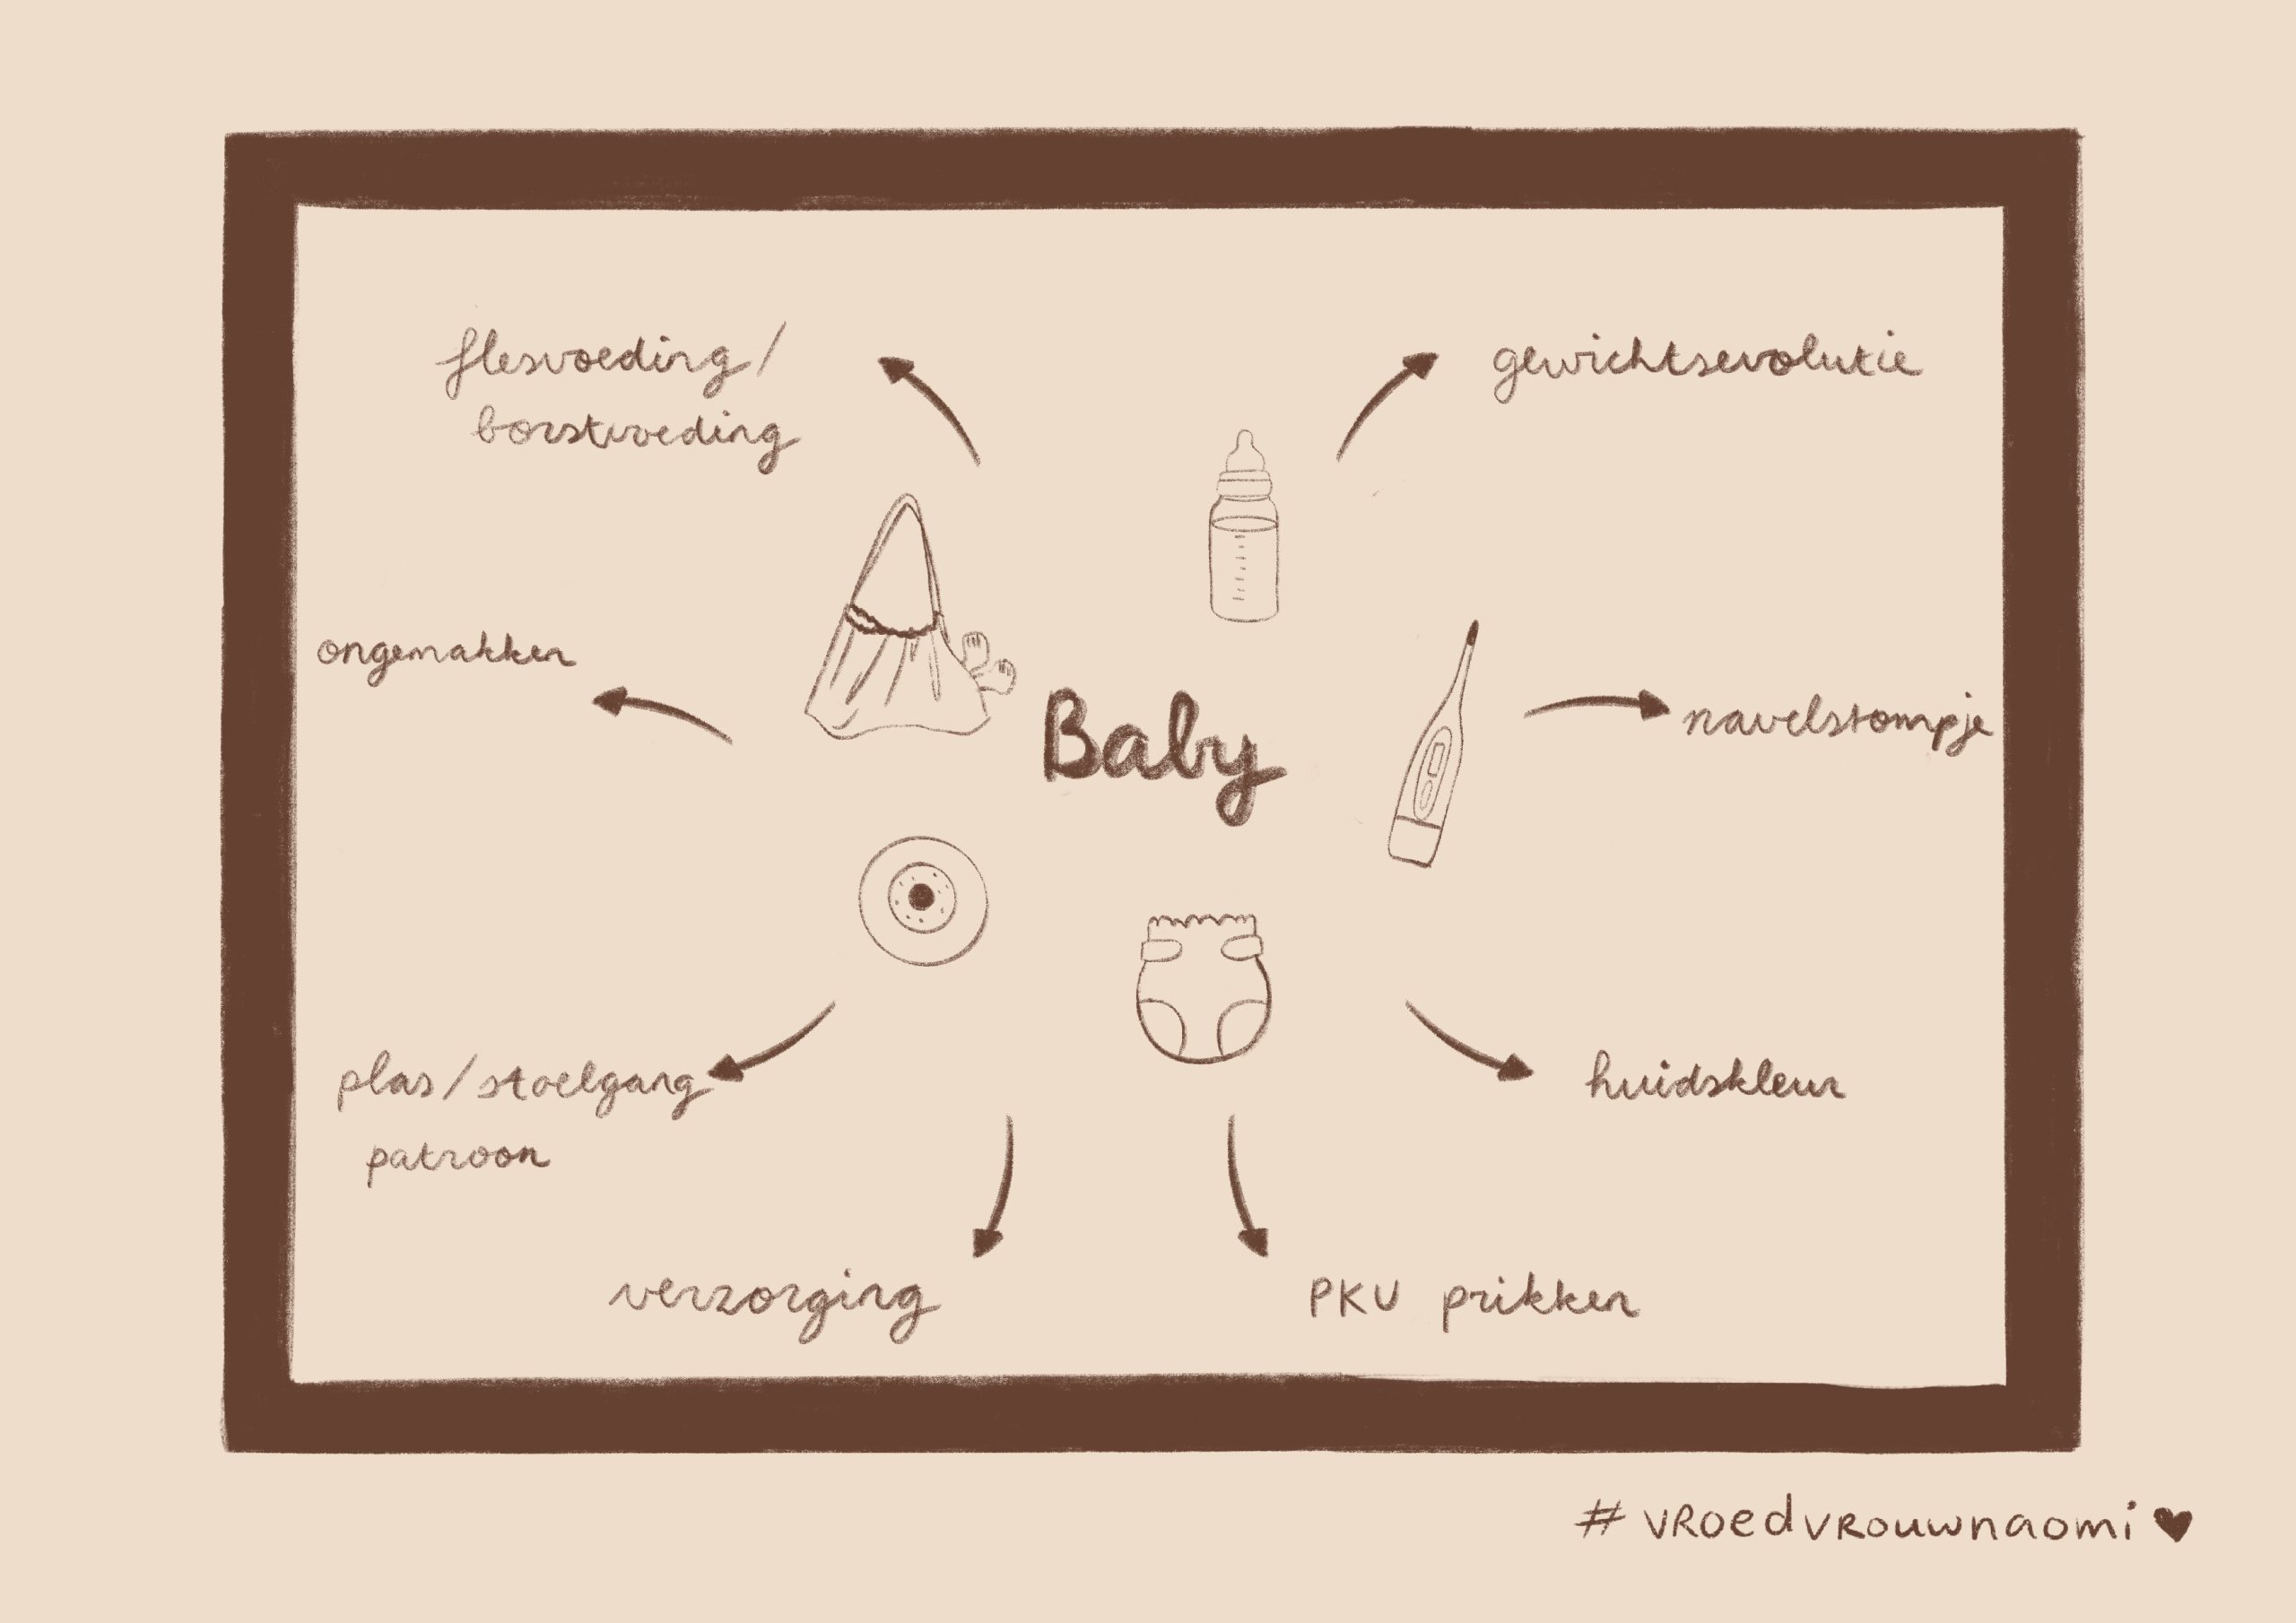 flesvoeding/
borstvoeding
gewichtsevolutie
ongemakken
Baby
navelstompje
plas/stoelgang
patroon
huidskleur
verzorging
PKU prikken
#vroedvrouwnaomi♥